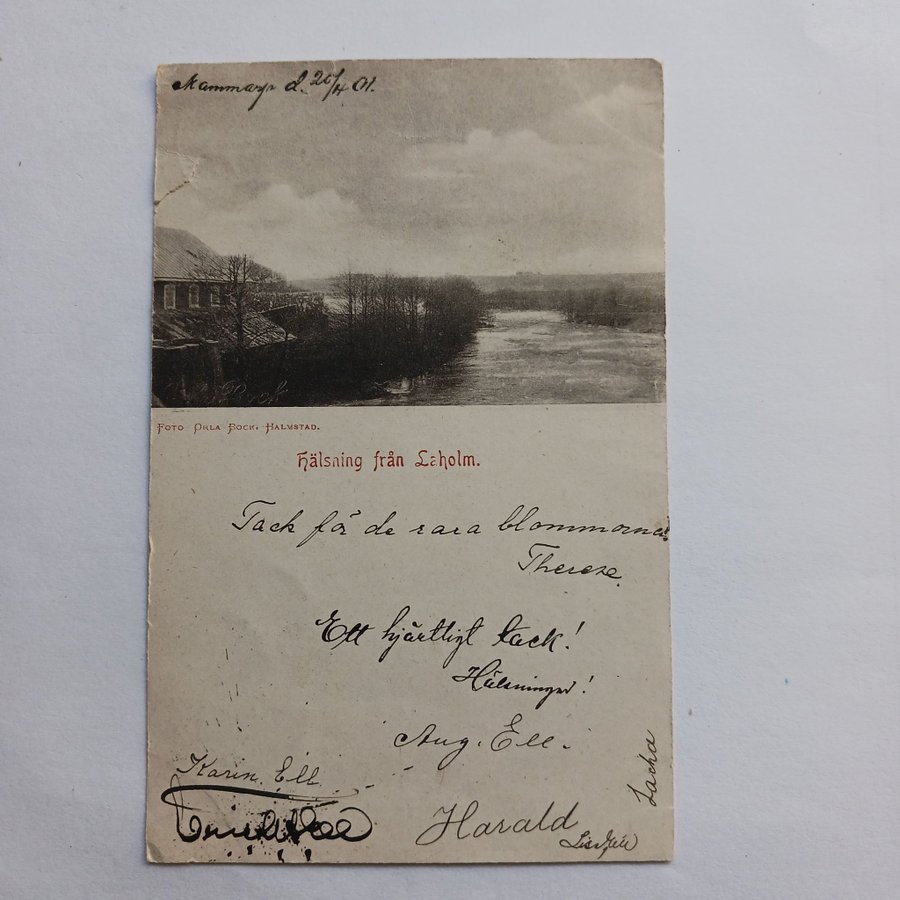 Mammarp d. 20/4 01.
FOTO ORLA BOCK. HALMSTAD.
Hälsning från Laholm.
Tack för de rara blommorna!
Therese.
Ett hjärtligt tack!
Hälsningar!
Aug. Ell.
Karin. Ell
Harald